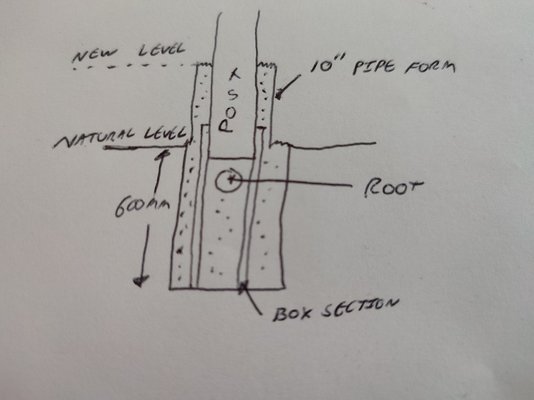 NEW LEVEL
10" PIPE FORM
POST
NATURAL LEVEL
600MM
ROOT
BOX SECTION